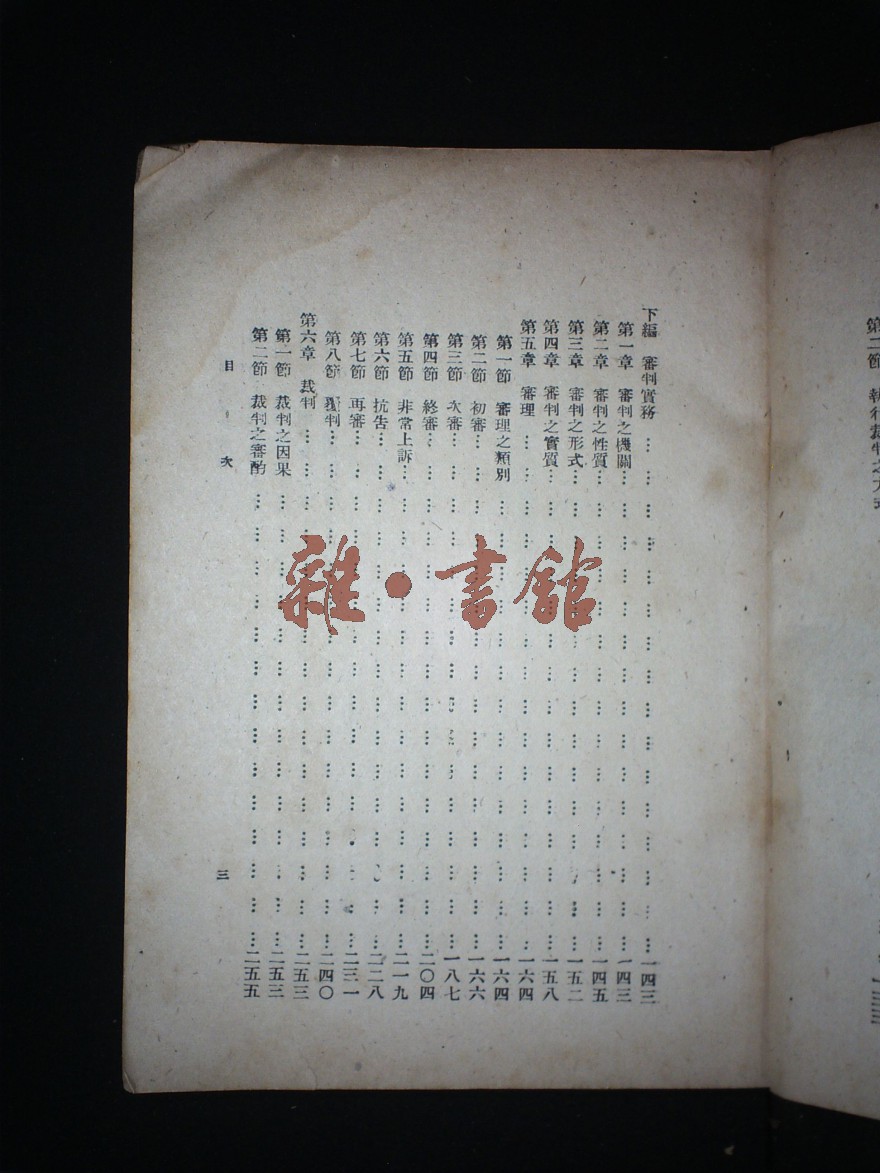 下編　審判實務………………………………………一四三
第一章　審判之機關………………………………………一四三
第二章　審判之性質………………………………………一四五
第三章　審判之形式………………………………………一五二
第四章　審判之實質………………………………………一五八
第五章　審理………………………………………一六四
第一節　審理之類別………………………………………一六四
第二節　初審………………………………………一六六
第三節　次審………………………………………一八七
第四節　終審………………………………………二〇四
第五節　非常上訴………………………………………二一九
第六節　抗告………………………………………二二八
第七節　再審………………………………………二三一
第八節　覆判………………………………………二四〇
第六章　裁判………………………………………二五三
第一節　裁判之因果………………………………………二五三
第二節　裁判之審酌………………………………………二五五
目次　三
雜・書館